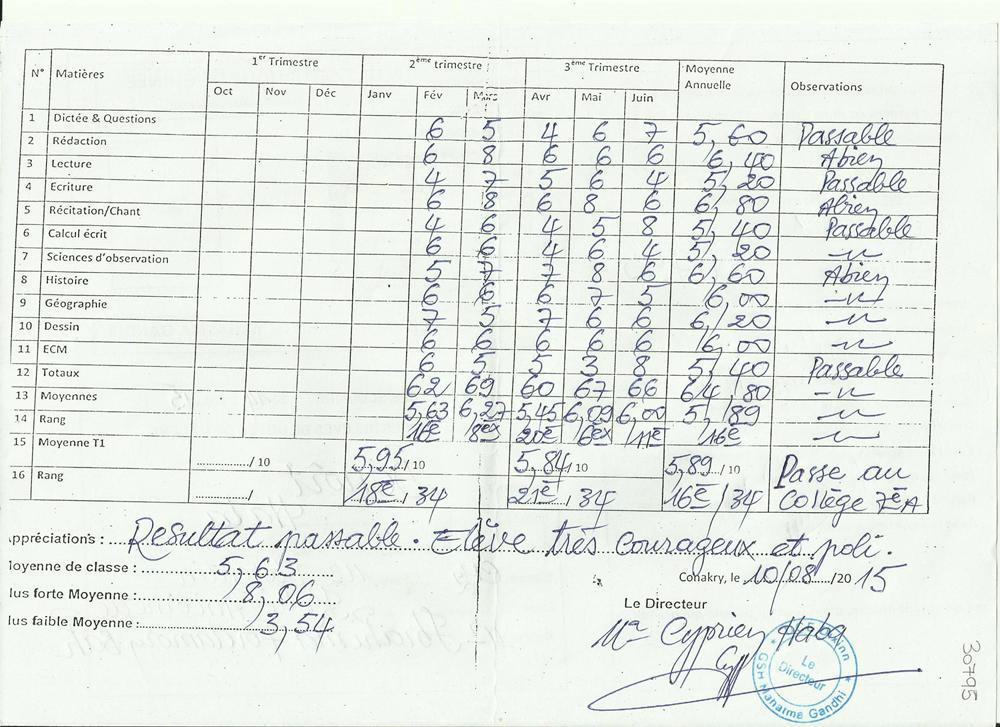 N° Matières 1er Trimestre 2ème trimestre 3ème Trimestre Moyenne Annuelle Observations
Oct Nov Déc Janv Fév Mars Avr Mai Juin
1 Dictée & Questions 6 5 4 6 7 5,60 Passable
2 Rédaction 6 8 6 6 6 6,40 Abien
3 Lecture 4 7 5 6 4 5,20 Passable
4 Ecriture 6 8 6 8 6 6,80 Abien
5 Récitation/Chant 4 6 4 5 8 5,40 Passable
6 Calcul écrit 6 6 4 6 4 5,20 -"-
7 Sciences d'observation 5 7 7 8 6 6,60 Abien
8 Histoire 6 6 6 7 5 6,00 -"-
9 Géographie 7 5 7 6 6 6,20 -"-
10 Dessin 6 6 6 6 6 6,00 -"-
11 ECM 6 5 5 3 8 5,40 Passable
12 Totaux 62 69 60 67 66 64,80 -"-
13 Moyennes 5,63 6,27 5,45 6,09 6,00 5,89 -"-
14 Rang 16è 8èx 20è 6èx 11è 16è -"-
15 Moyenne T1 ............/ 10 5,95/ 10 5,84/ 10 5,89 / 10 Passe au
16 Rang ............/ 18è / 34 21è / 34 16è / 34 Collège 7èA
ppréciations : Resultat passable. Elève très courageux et poli.
oyenne de classe : 5,63
lus forte Moyenne : 8,06
lus faible Moyenne : 3,54
Conakry, le 10/08/2015
Le Directeur
Mr Cyprien Haba
Le Directeur
GSH Mahatma Gandhi
30795